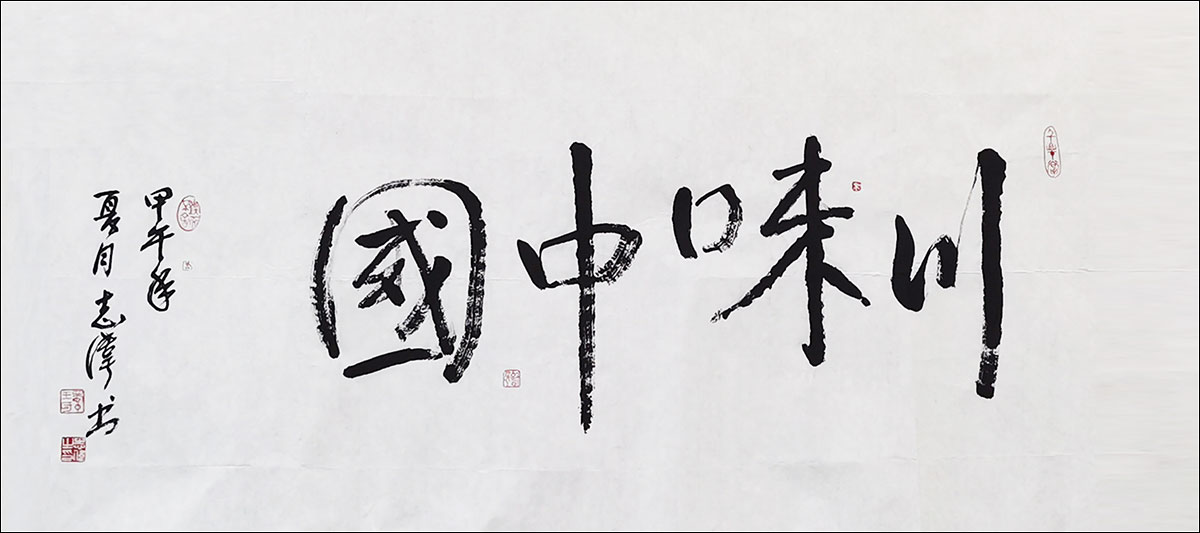 川味中國
甲午年
夏月志偉书